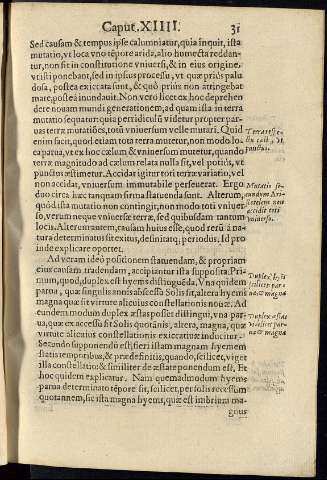 Caput. XIIII. 31
Sed causam & tempus ipse calumniatur, quia inquit, ista
mutatio, vt loca vno tēpore arida, alio humecta reddan-
tur, non sit in constitutione vniuersi, & in eius origine,
vt isti ponebant, sed in ipsius processu, vt quæ priùs palu-
dosa, postea exiccata sunt, & quò priùs non attingebat
mare, postea inundauit. Non verò licet ex hoc deprehen
dere nouam mundi generationem, ad quam ista in terra
mutatio sequatur: quia perridiculũ videtur propter par-
uas terræ mutatiões, totũ vniuersum velle mutari. Quid
enim facit, quod etiam tota terra mutetur, non modo lo-
ca parua, vt ex hoc cælum & vniuersum mutetur, quando
terræ magnitudo ad cælum relata nulla sit, vel potiùs, vt
punctus æstimetur. Accidat igitur tori terræ variatio, vel
non accidat, vniuersum immutabile perseuerat. Ergo
duo circa hæc tanquam firma statuenda sunt. Alterum,
quòd ista mutatio non contingit, non modo toti vniuer-
so, verum neque vniuersæ terræ, sed quibusdam tantum
locis. Alterum autem, causam huius esse, quod rerũ à na
tura determinatus sit exitus, definitaq; periodus. Id pro
inde explicare oportet.
Ad veram ideò positionem statuendam, & propriam
eius causam tradendam, accipiantur ista supposita. Pri-
mum, quod, duplex est hyems distinguẽda. Vna quidem
parua, quæ singulis annis absceßu Solis fit, altera hyems
magna quæ fit virtute alicuius constellationis nouæ. Ad
eundem modum duplex æstas posset distingui, vna par-
ua, quæ ex accessu fit Solis quotãnis, altera, magna, quæ
virtute alicuius constellationis exiccatiuæ inducitur.
Secundo supponendo est, fieri istam magnam hyemem
statis temporibus, & prædefinitis, quando, scilicet, viget
illa constellatio: & similiter de æstate ponendum est. Et
hoc quidem explicatur. Nam quemadmodum hyems
parua determinato tẽpore fit, scilicet, per solis recessum
quotannem, sic ista magna hyems, quæ est imbrium ma-
gnus
punctus.
Mutatio se-
cundum Ari-
stotelem non
accidit toti
vniuerso.
scilicet par-
ua & magna
Duplex æstas
scilicet par-
ua & magna